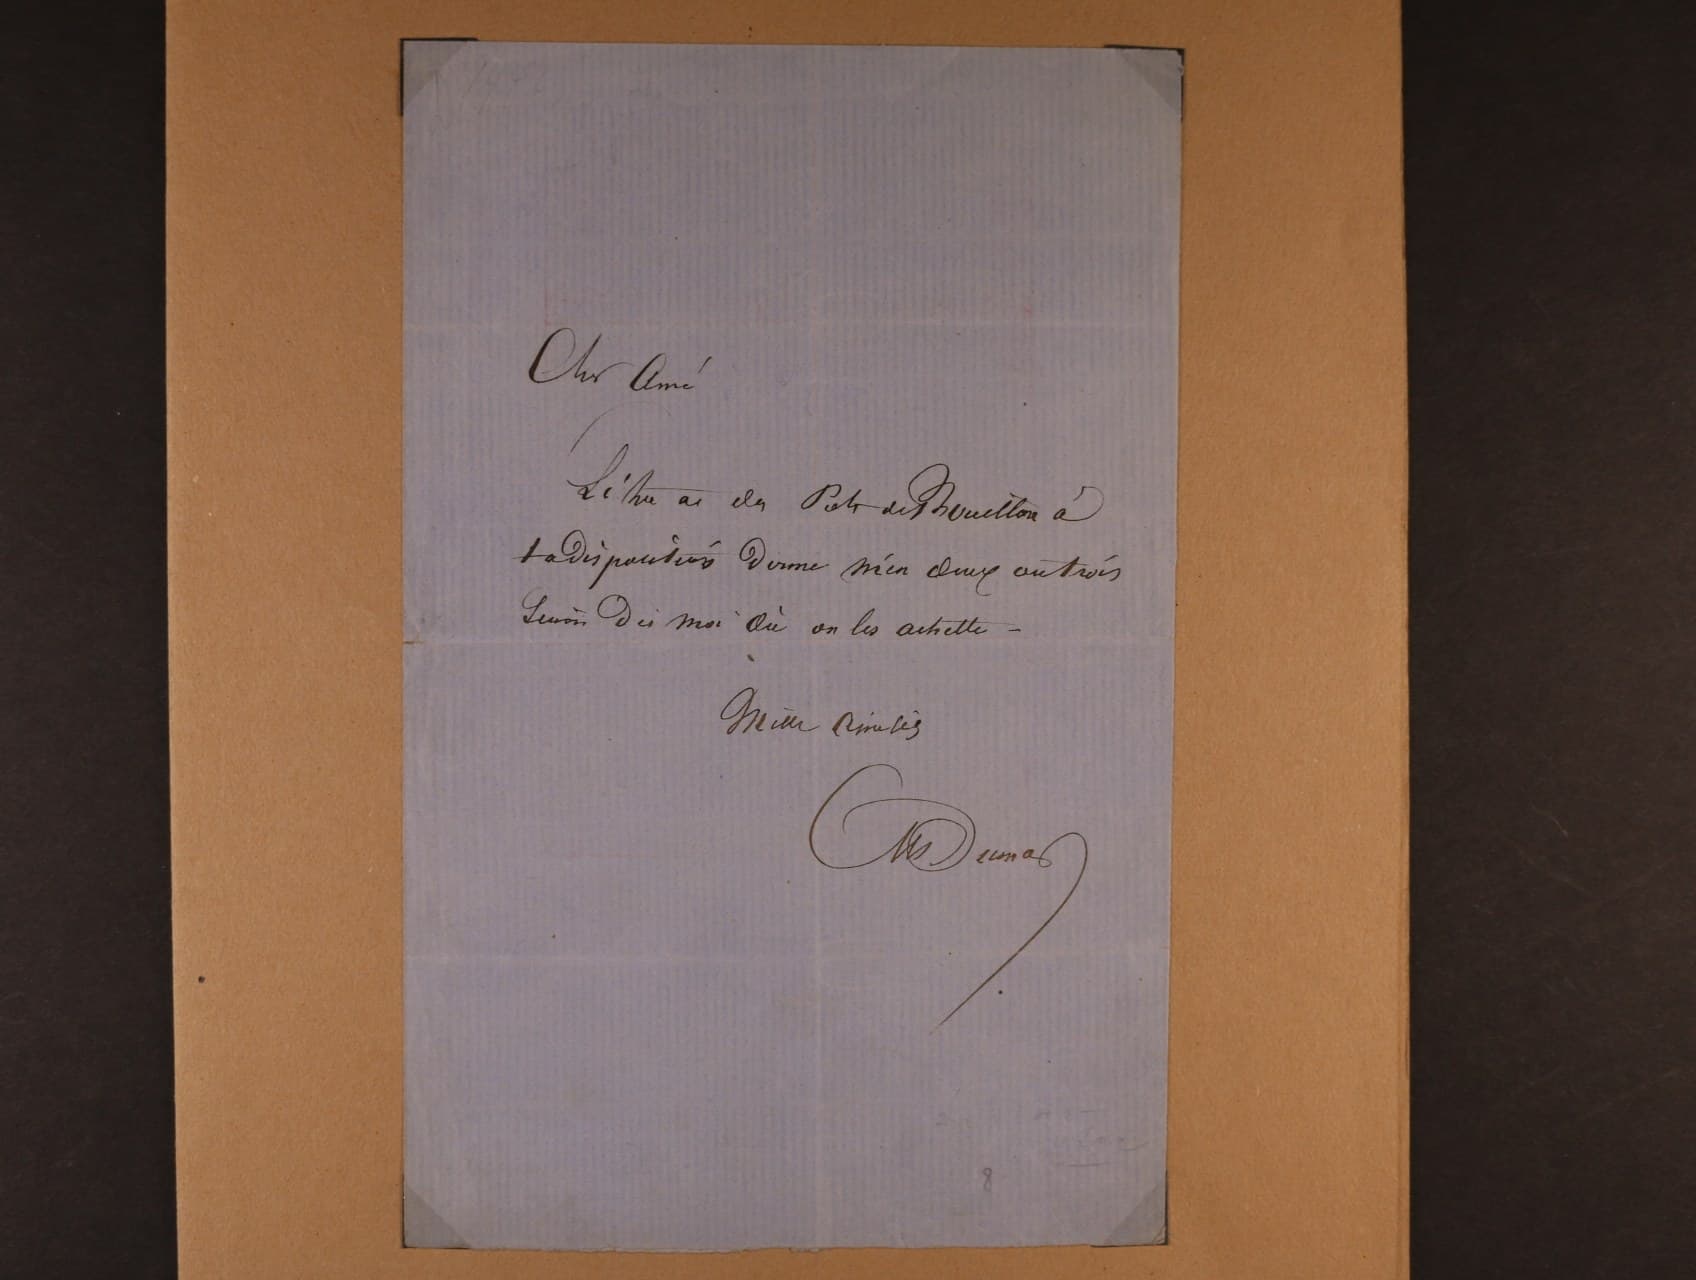 Cher Ami
as des Pots de Bouillon à
ta disposition Donne m'en deux ou trois
Sinon Dis moi où on les achette –
Mille amitiés
Als Dumas
8